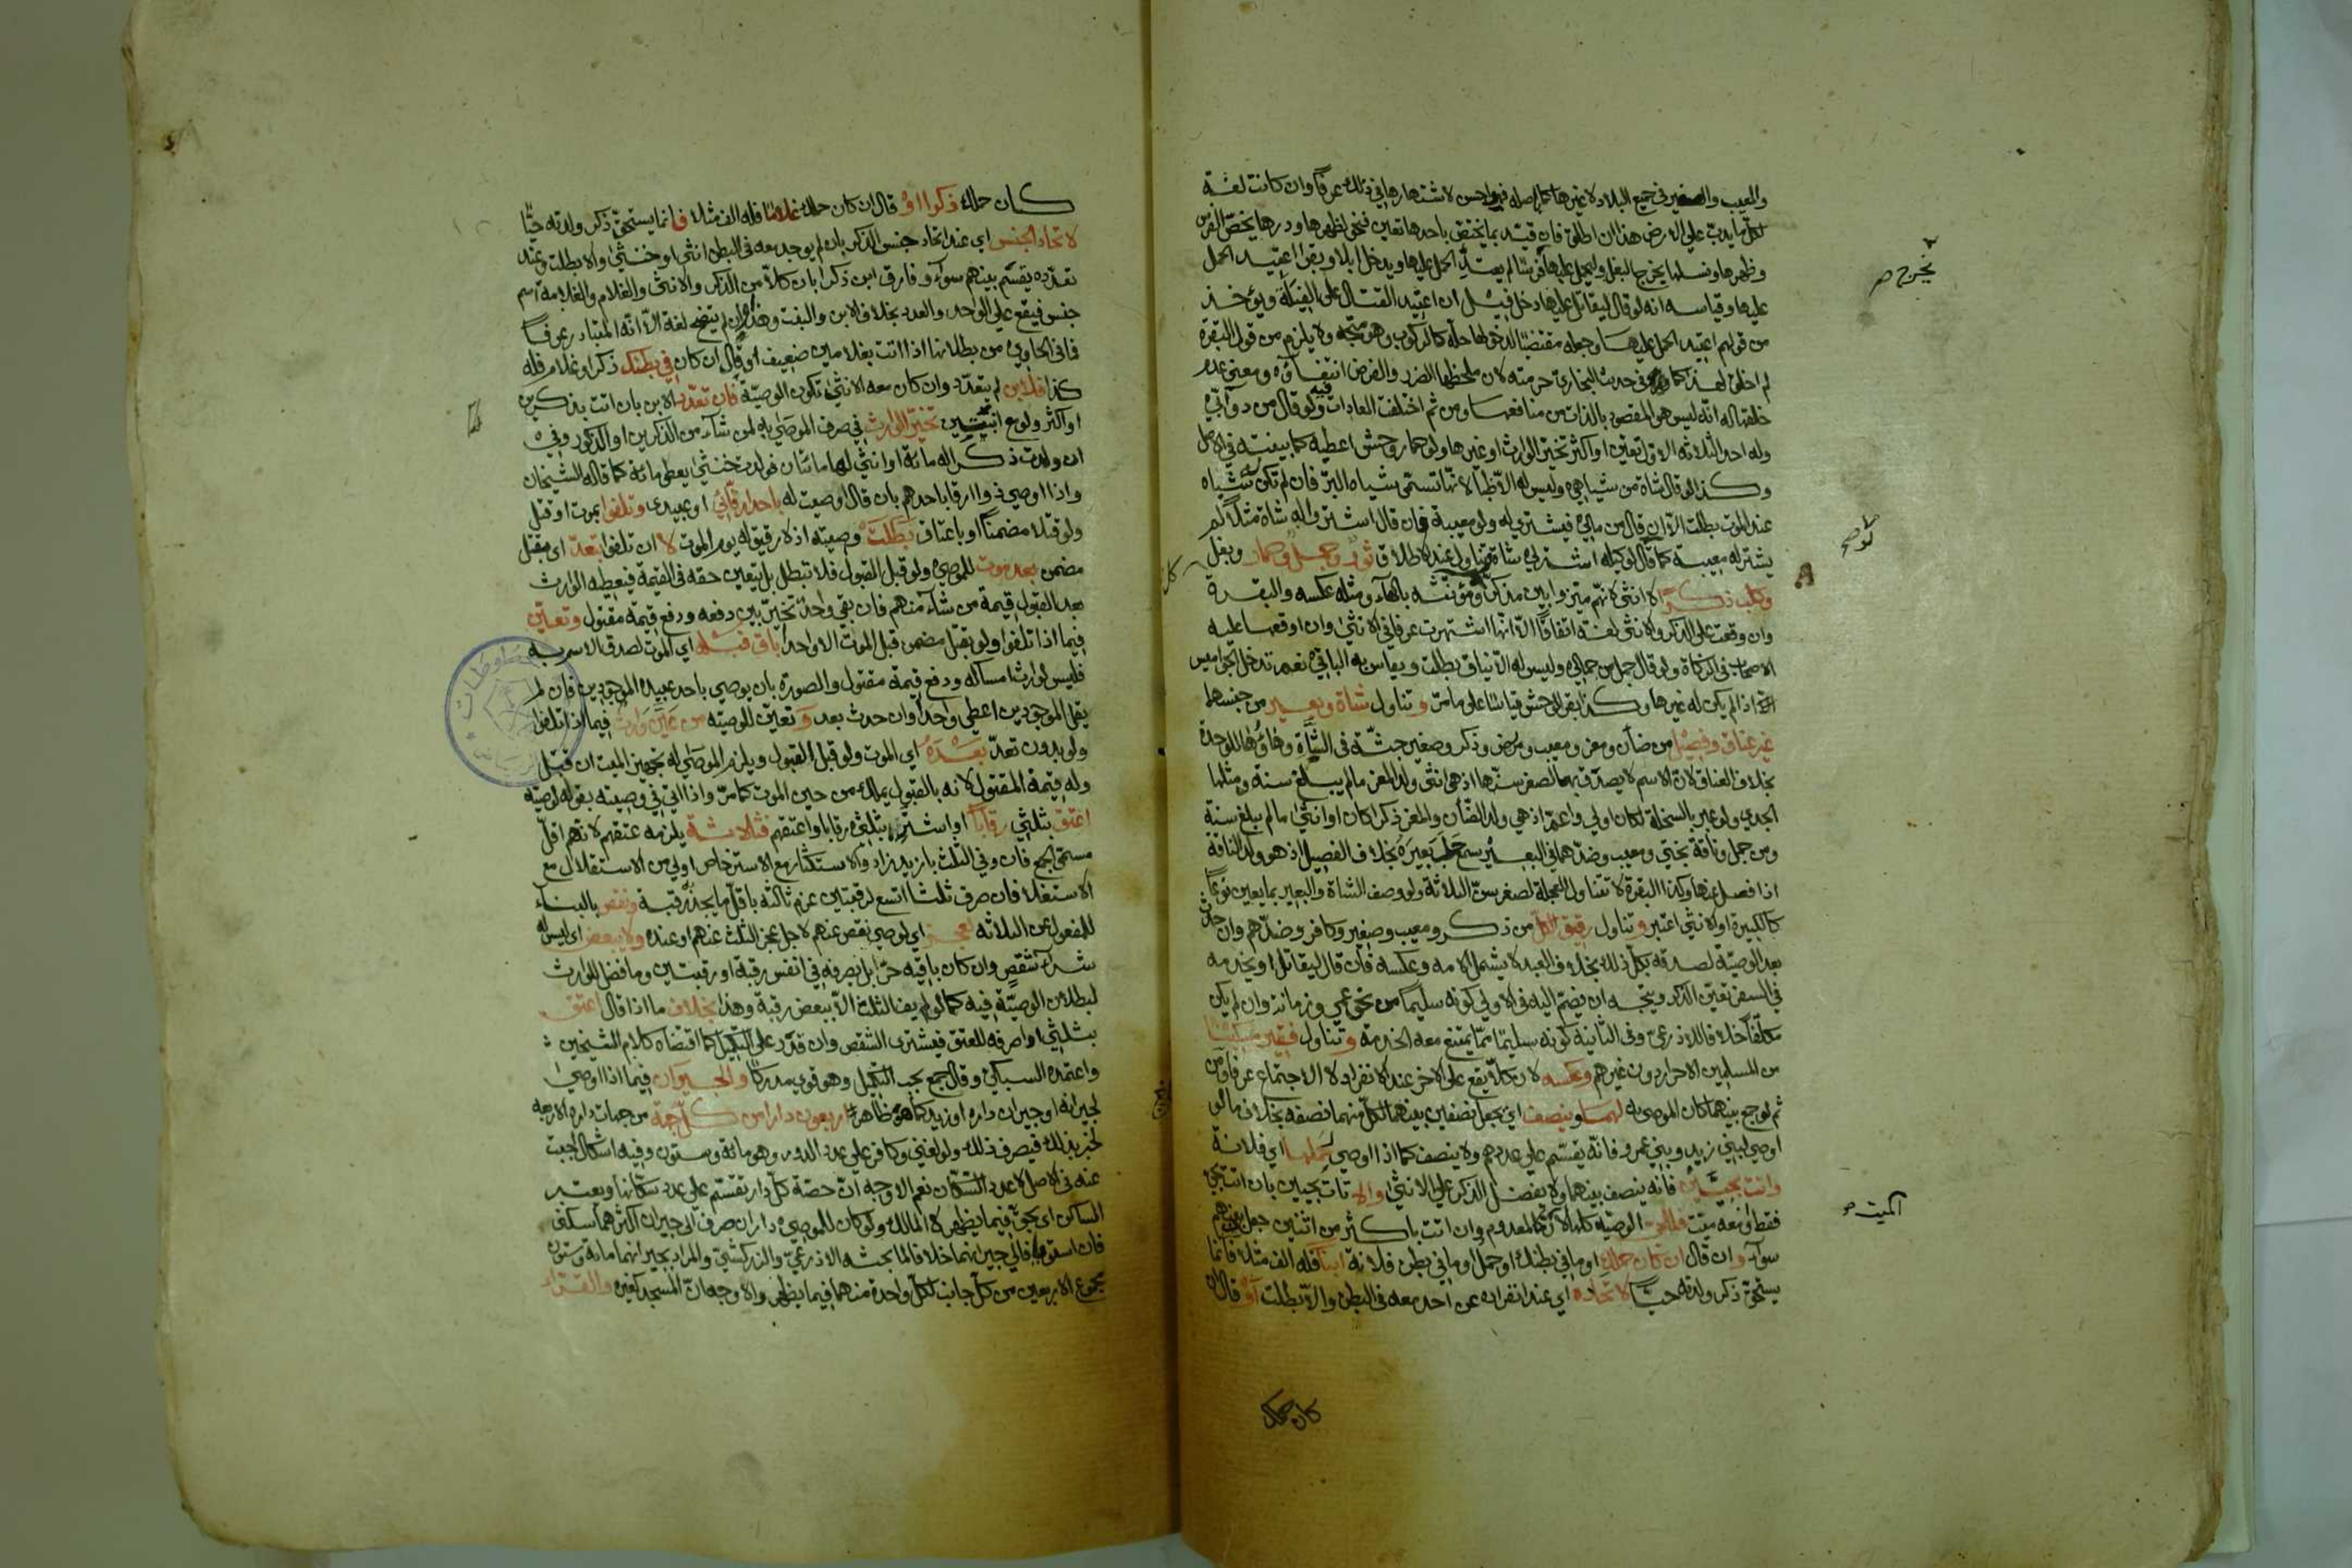 والعيب والصغير في جميع البلاد لا غيرها كما باصله فيها وحسن لاشتهارها في ذلك عرفا وان كانت لغة
لكل ما يدب على الارض هذا ان اطلق فان قيد بما يختص باحدها تعين فنحو لظهرها ودرها يخص الفرس
وظهرها ونسلها يخرج البغل وليحمل عليها فرسا لم يعتد الحمل عليها ويدخل ابلا وبقرا اعتيد الحمل
عليها وقياسه انه لو قال ليقاتل عليها دخل فيل ان اعتيد القتال على الفيلة ويؤخذ
من قولهم اعتيد الحمل عليها وجعله مقتضيا لدخولها حله كالركوب وهو متجه ولا يلزم من قول البقرة
لم اخلق لهذا كما في حديث البخاري حرمته لان ملحظها الضرر والفرض انتفاؤه ومعنى عدم
خلقها له انه ليس هو المقصود بالذات من منافعها ومن ثم اختلفت العادات فيه ولو قال من دوابي
وله احد الثلاثة الاول تعين او اكثر تخير الوارث او غيرها ولو حمار وحش اعطيه كما بينته في الاصل
وكذا لو قال شاة من شياهي وليس له الا ظبا لانها تسمى شياه البر فان لم تكن له شياه
عند الموت بطلت الا ان قال من مالي فيشترى له ولو معيبة فان قال اشتروا له شاة مثلا لم
يشتر له معيبة كما لو قال لوكيله اشتر لي شاة ويتناول عند الاطلاق ثور وجمل وحمار وبغل
وكلب ذكرا لا انثى لانهم ميزوا بين مذكرها ومؤنثه بالهاء ومثله عكسه والبقرة
وان وقعت على الذكر والانثى لغة اتفاقا الا انها اشتهرت عرفا في الانثى وان اوقعها عليه
الاصحاب في الزكاة ولو قال جمل من جمالي وليس له الا نياق بطلت ويقاس به الباقي نعم تدخل الجواميس
اذا لم يكن له غيرها وكذا بقر الوحش قياسا على ما مر وتناول شاة وبعير من جنسها
غير عناق وفصيل من ضأن ومعز ومعيب ومريض وذكر وصغير جثة في الشاة وهاؤها للوحدة
بخلاف العناق لان الاسم لا يصدق بهما لصغر سنها اذ هي انثى ولد المعز ما لم يبلغ سنة ومثلها
الجدي ولو عبر بالسخلة لكان اولى واعم اذ هي ولد الضأن والمعز ذكرا كان او انثى ما لم يبلغ سنة
ومن جمل وناقة بختي ومعيب وضدهما في البعير سمع حلب بعيره بخلاف الفصيل اذ هو ولد الناقة
اذا فصل عنها وكذا البقرة لا تتناول العجلة لصغر سن الثلاثة ولو وصف الشاة والبعير بما يعين نوعا
كالكبيرة او الانثى اعتبر وتناول رقيق الكل من ذكر ومعيب وصغير وكافر وضدهم وان حدث
بعد الوصية لصدقه بكل ذلك بخلاف العبد لا يشمل الامة وعكسه فان قال ليقاتل او يخدمه
في السفر تعين الذكر ويتجه ان يضم اليه في الاولى كونه سليما من نحو عمى وزمانة وان لم يكن
مكلفا خلافا للاذرعي وفي الثانية كونه سليما مما يمتنع معه الخدمة وتناول فقير مسكينا
من المسلمين الاحرار دون غيرهم وعكسه لان كلا يقع على الاخر عند الانفراد لا الاجتماع عرفا ومن
ثم لو جمع بينهما كان الموصى به لهما وينصف اي يجعل نصفين بينهما لكل منهما نصفه بخلاف ما لو
اوصى لبني زيد وبني عمرو فانه يقسم على عددهم ولا ينصف كما اذا اوصى لحملها اي فلانة
واتت بحيين فانه ينصف بينهما ولا يفضل الذكر على الانثى والا تأت بحيين بان اتت بحي
فقط او معه ميت فللحي الوصية كلها لان الميت كالمعدوم وان اتت باكثر من اثنين جعل بينهم
سواء وان قال ان كان حملك او ما في بطنك او حمل او ما في بطن فلانة ابنا فله الف مثلا فانما
يستحق ذكر ولدته حيا لاتحاده اي عند انفراده عن احد معه في البطن والا بطلت او قال ان
كان حملك
نخرج صح
لو صح
الميت صح
كان حملك ذكرا او قال ان كان حملك غلاما فله الف مثلا فانما يستحق ذكر ولدته حيا
لاتحاد الجنس اي عند اتحاد جنس الذكر بان لم يوجد معه في البطن انثى او خنثى والا بطلت وعند
تعدده يقسم بينهم سواء وفارق ابن ذكرا بان كلا من الذكر والانثى والغلام والغلامة اسم
جنس فيقع على الواحد والعدد بخلاف الابن والبنت وهذا وان لم يتضح لغة الا انه المتبادر عرفا
فما في الحاوي من بطلانها اذا اتت بغلامين ضعيف او قال ان كان في بطنك ذكر او غلام فله
كذا فلابن لم يتعدد وان كان معه الانثى تكون الوصية فان تعدد الابن بان اتت بذكرين
او اكثر ولو مع انثيين تخير الوارث في صرف الموصى به لمن شاء من الذكرين او الذكور وفي
ان ولدت ذكرا له مائة او انثى لها مائتان فولدت خنثى يعطى مائة كما قاله الشيخان
واذا اوصى ذوا ارقا باحدهم بان قال اوصيت له باحد ارقائي او عبيدي وتلفوا بموت او قتل
ولو قتلا مضمنا او باعتاق بطلت وصيته اذ لا رقيق له يوم الموت لا ان تلفوا تعد اي بقتل
مضمن بعد موت للموصي ولو قبل القبول فلا تبطل بل يتعين حقه في القيمة فيعطيه الوارث
بعد القبول قيمة من شاء منهم فان بقي واحد تخير بين دفعه ودفع قيمة مقتول وتعين
فيما اذا تلفوا ولو بقتل مضمن قبل الموت الا واحدا باق قبله اي الموت لصدق الاسم به
فليس لوارث امساكه ودفع قيمة مقتول والصورة بان يوصي باحد عبيده الموجودين فان لم
يقل الموجودين اعطي واحدا وان حدث بعد و تعين للوصية من عين وارث فيما اذا تلفوا
ولو بدون تعد بعده اي الموت ولو قبل القبول ويلزم الموصى له تجهيز الميت ان قبل
وله قيمة المقتول لانه بالقبول يملك من حين الموت كما مر واذا اتى في وصيته بقوله لوصيه
اعتق بثلثي رقابا او اشتر بثلثي رقابا واعتقهم فثلاثة يلزمه عتقهم لانهم اقل
مسمى الجمع فان وفى الثلث بازيد زاد والاستكثار مع الاسترخاص اولى من الاستقلال مع
الاستغلا فان صرف ثلثا اتسع لرقبتين غرم ثالثة باقل ما يجد رقبة ونقص بالبناء
للمفعول عن الثلاثة لعجز اي لوصي ينقص عنهم لاجل عجز الثلث عنهم او عنده ولا يبعض اي ليس له
شراء شقص وان كان باقيه حرا بل يصرفه في انفس رقبة او رقبتين وما فضل للوارث
لبطلان الوصية فيه كما لو لم يف الثلث الا ببعض رقبة وهذا بخلاف ما اذا قال اعتق
بثلثي او اصرفه للعتق فيشترى الشقص وان قدر على التكميل كما اقتضاه كلام الشيخين
واعتمده السبكي وقال جمع يجب التكميل وهو قوي مدركا والجيران فيما اذا اوصى
لجيرانه او جيران داره او زيد كما هو ظاهر اربعون دارا من كل جهة من جهات داره الاربعة
لخبر بذلك فيصرف ذلك ولو لغني وكافر على عدد الدور وهو مائة وستون وفيه اشكال اجبت
عنه في الاصل لا عدد السكان نعم الاوجه ان حصة كل دار تقسم على عدد سكانها ويعتبر
الساكن اي بحق فيما يظهر لا المالك ولو كان للموصي داران صرف الى جيران اكثرهما سكنى
فان استويا فالى جيرانهما خلافا لما بحثه الاذرعي والزركشي والمراد بجيرانهما مائة وستون
مجموع الاربعين من كل جانب لكل واحدة منهما فيما يظهر والاوجه ان المسجد كغيره والقراء